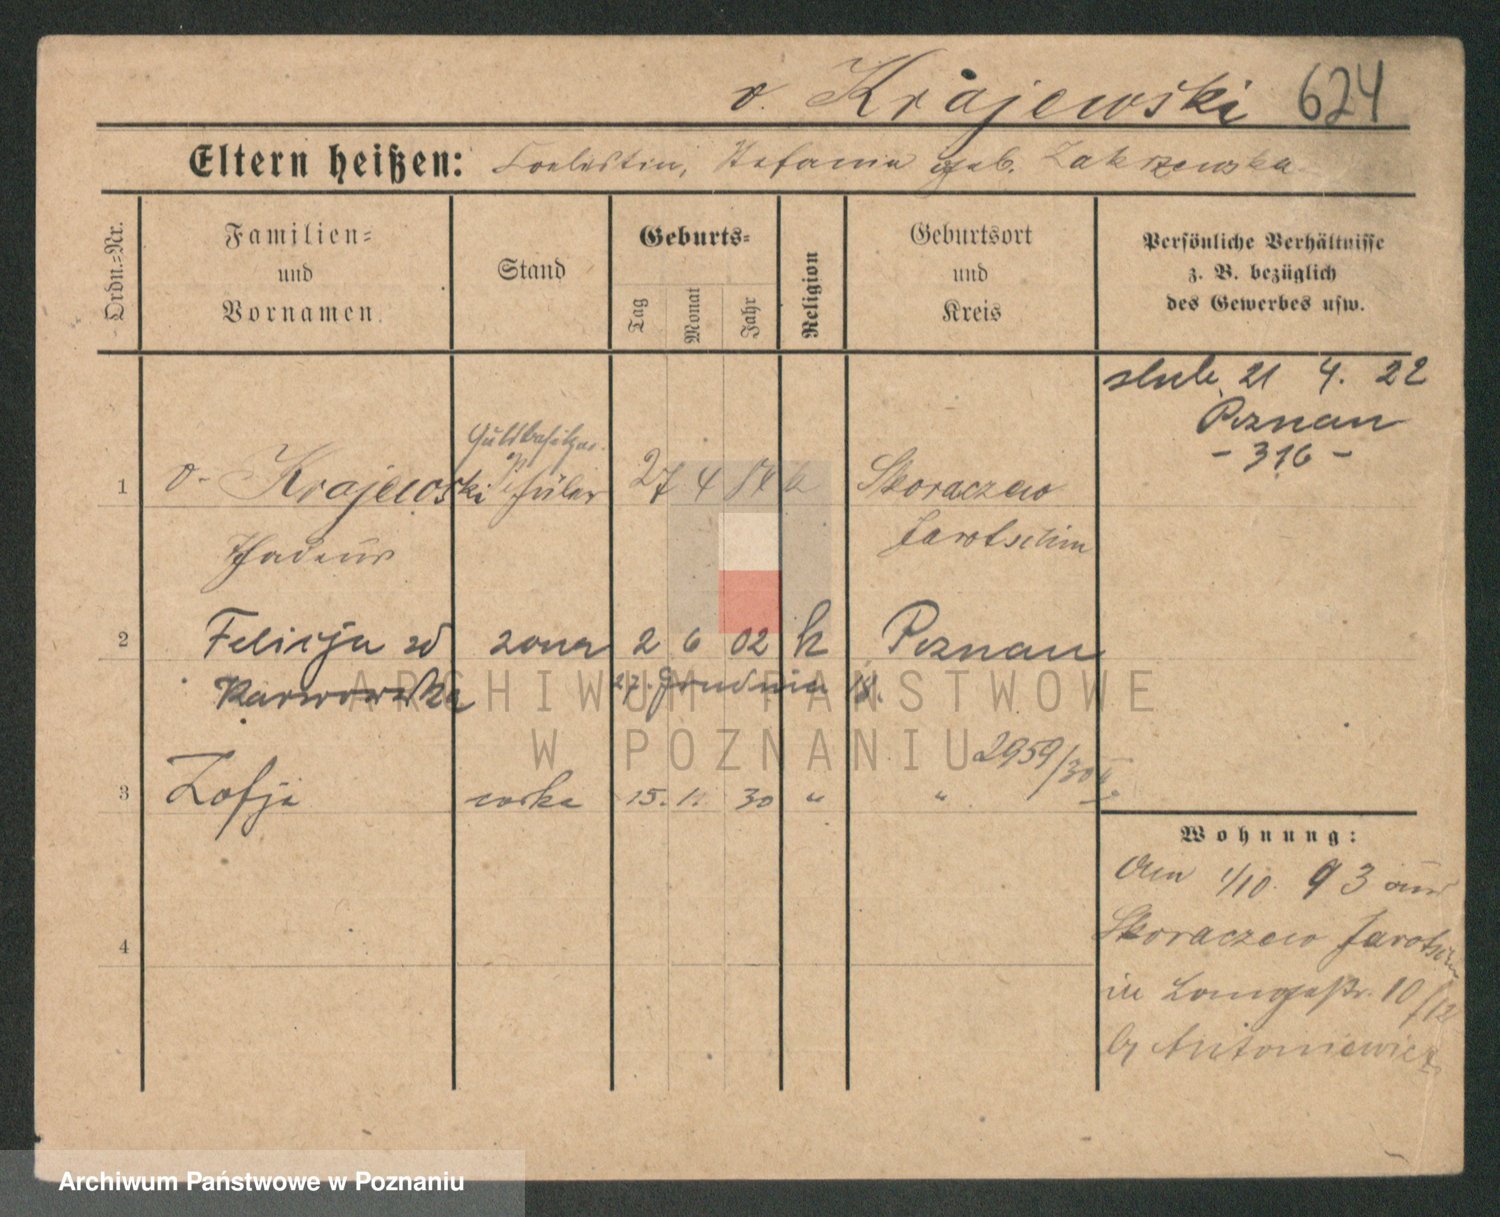 v. Krajewski 624
Eltern heißen: Coelestin, Stefania geb. Zakrzewska
Ordn.-Nr.
Familien-
und
Vornamen
Stand
Geburts-
Tag
Monat
Jahr
Religion
Geburtsort
und
Kreis
Persönliche Verhältnisse
z. B. bezüglich
des Gewerbes usw.
ślub 21 4. 22
Poznan
- 316 -
Gutsbesitzer
1 v. Krajewski Schüler 27 4 84 k Skoraczewo
Thadeus Jarotschin
2 Felicja zd żona 2 6 02 k Poznan
Karwowska 27. Grudnia 18.
2959/30
3 Zofja corka 15. 11. 30 " "
Wohnung:
Am 1/10. 93 aus
Skoraczewo Jarotschin
in Langestr. 10/12
b/ Antoniewicz
4
ARCHIWUM PAŃSTWOWE
W POZNANIU
Archiwum Państwowe w Poznaniu